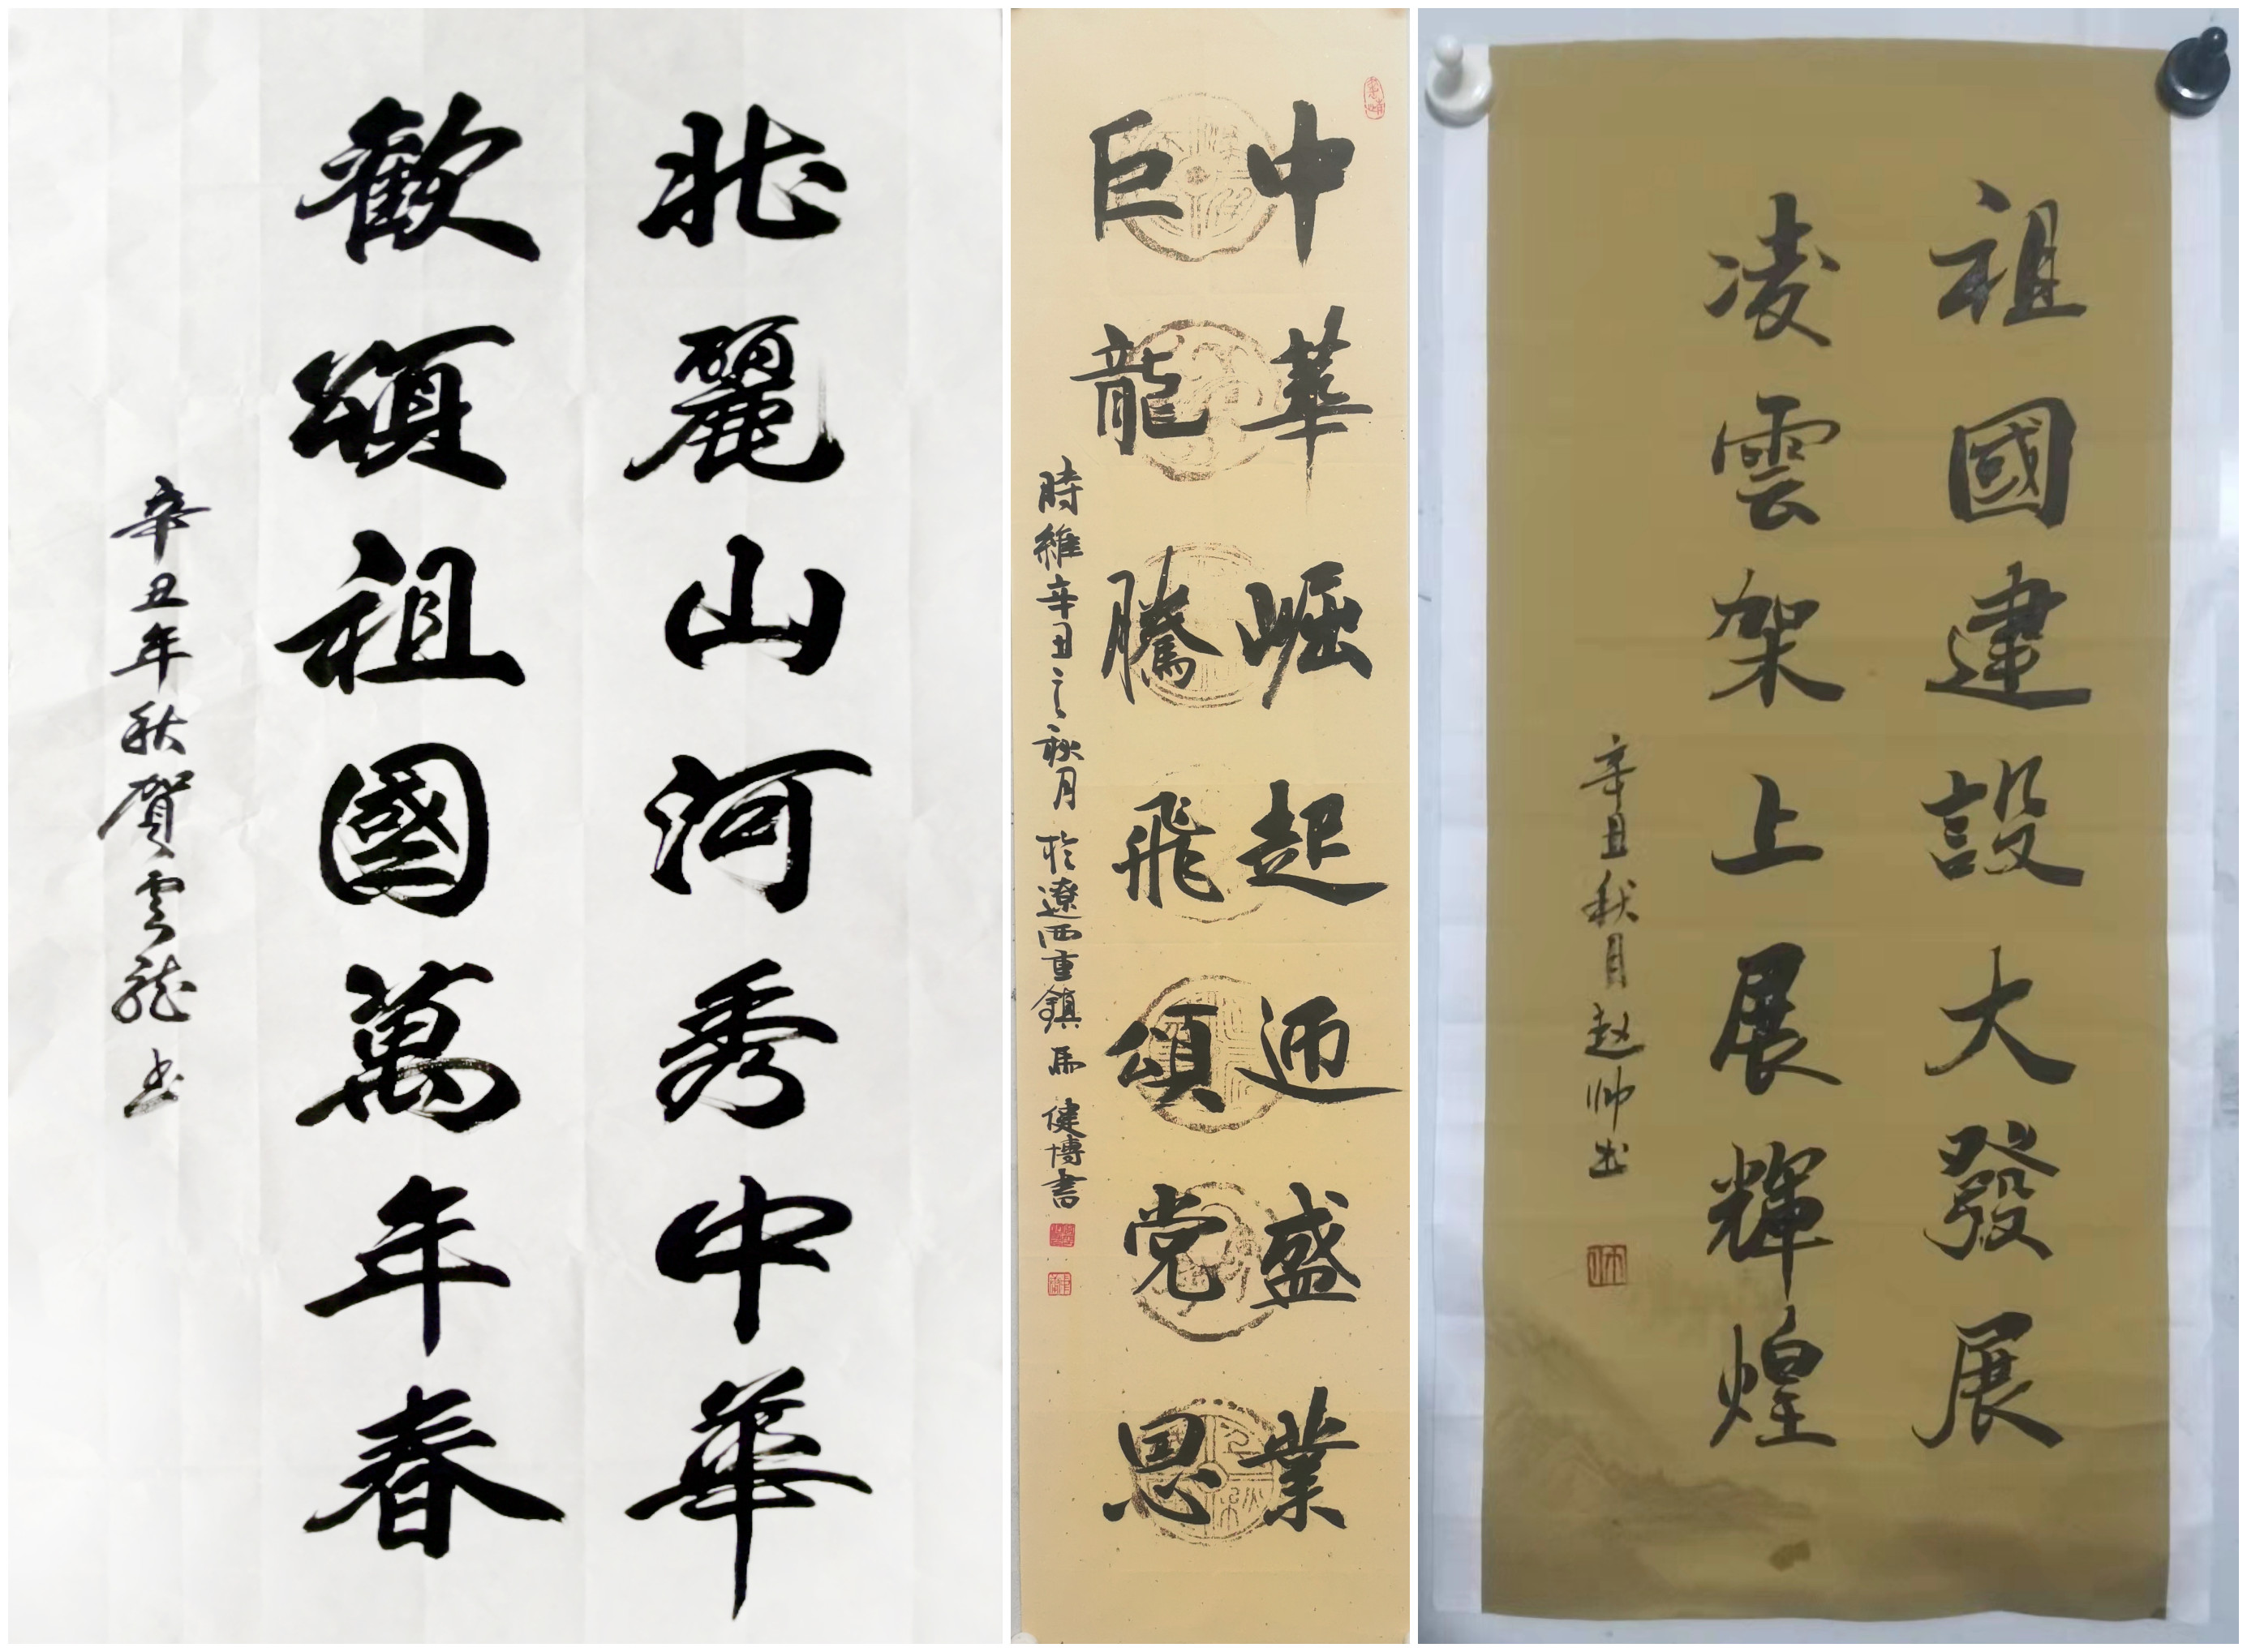 壯麗山河秀中華
歡頌祖國萬年春
辛丑年秋賀雲龍书
中華崛起迎盛業
巨龍騰飛頌党恩
時維辛丑之秋月於遼西重鎮馬健博書
祖國建設大發展
凌雲架上展輝煌
辛丑秋月赵帅书